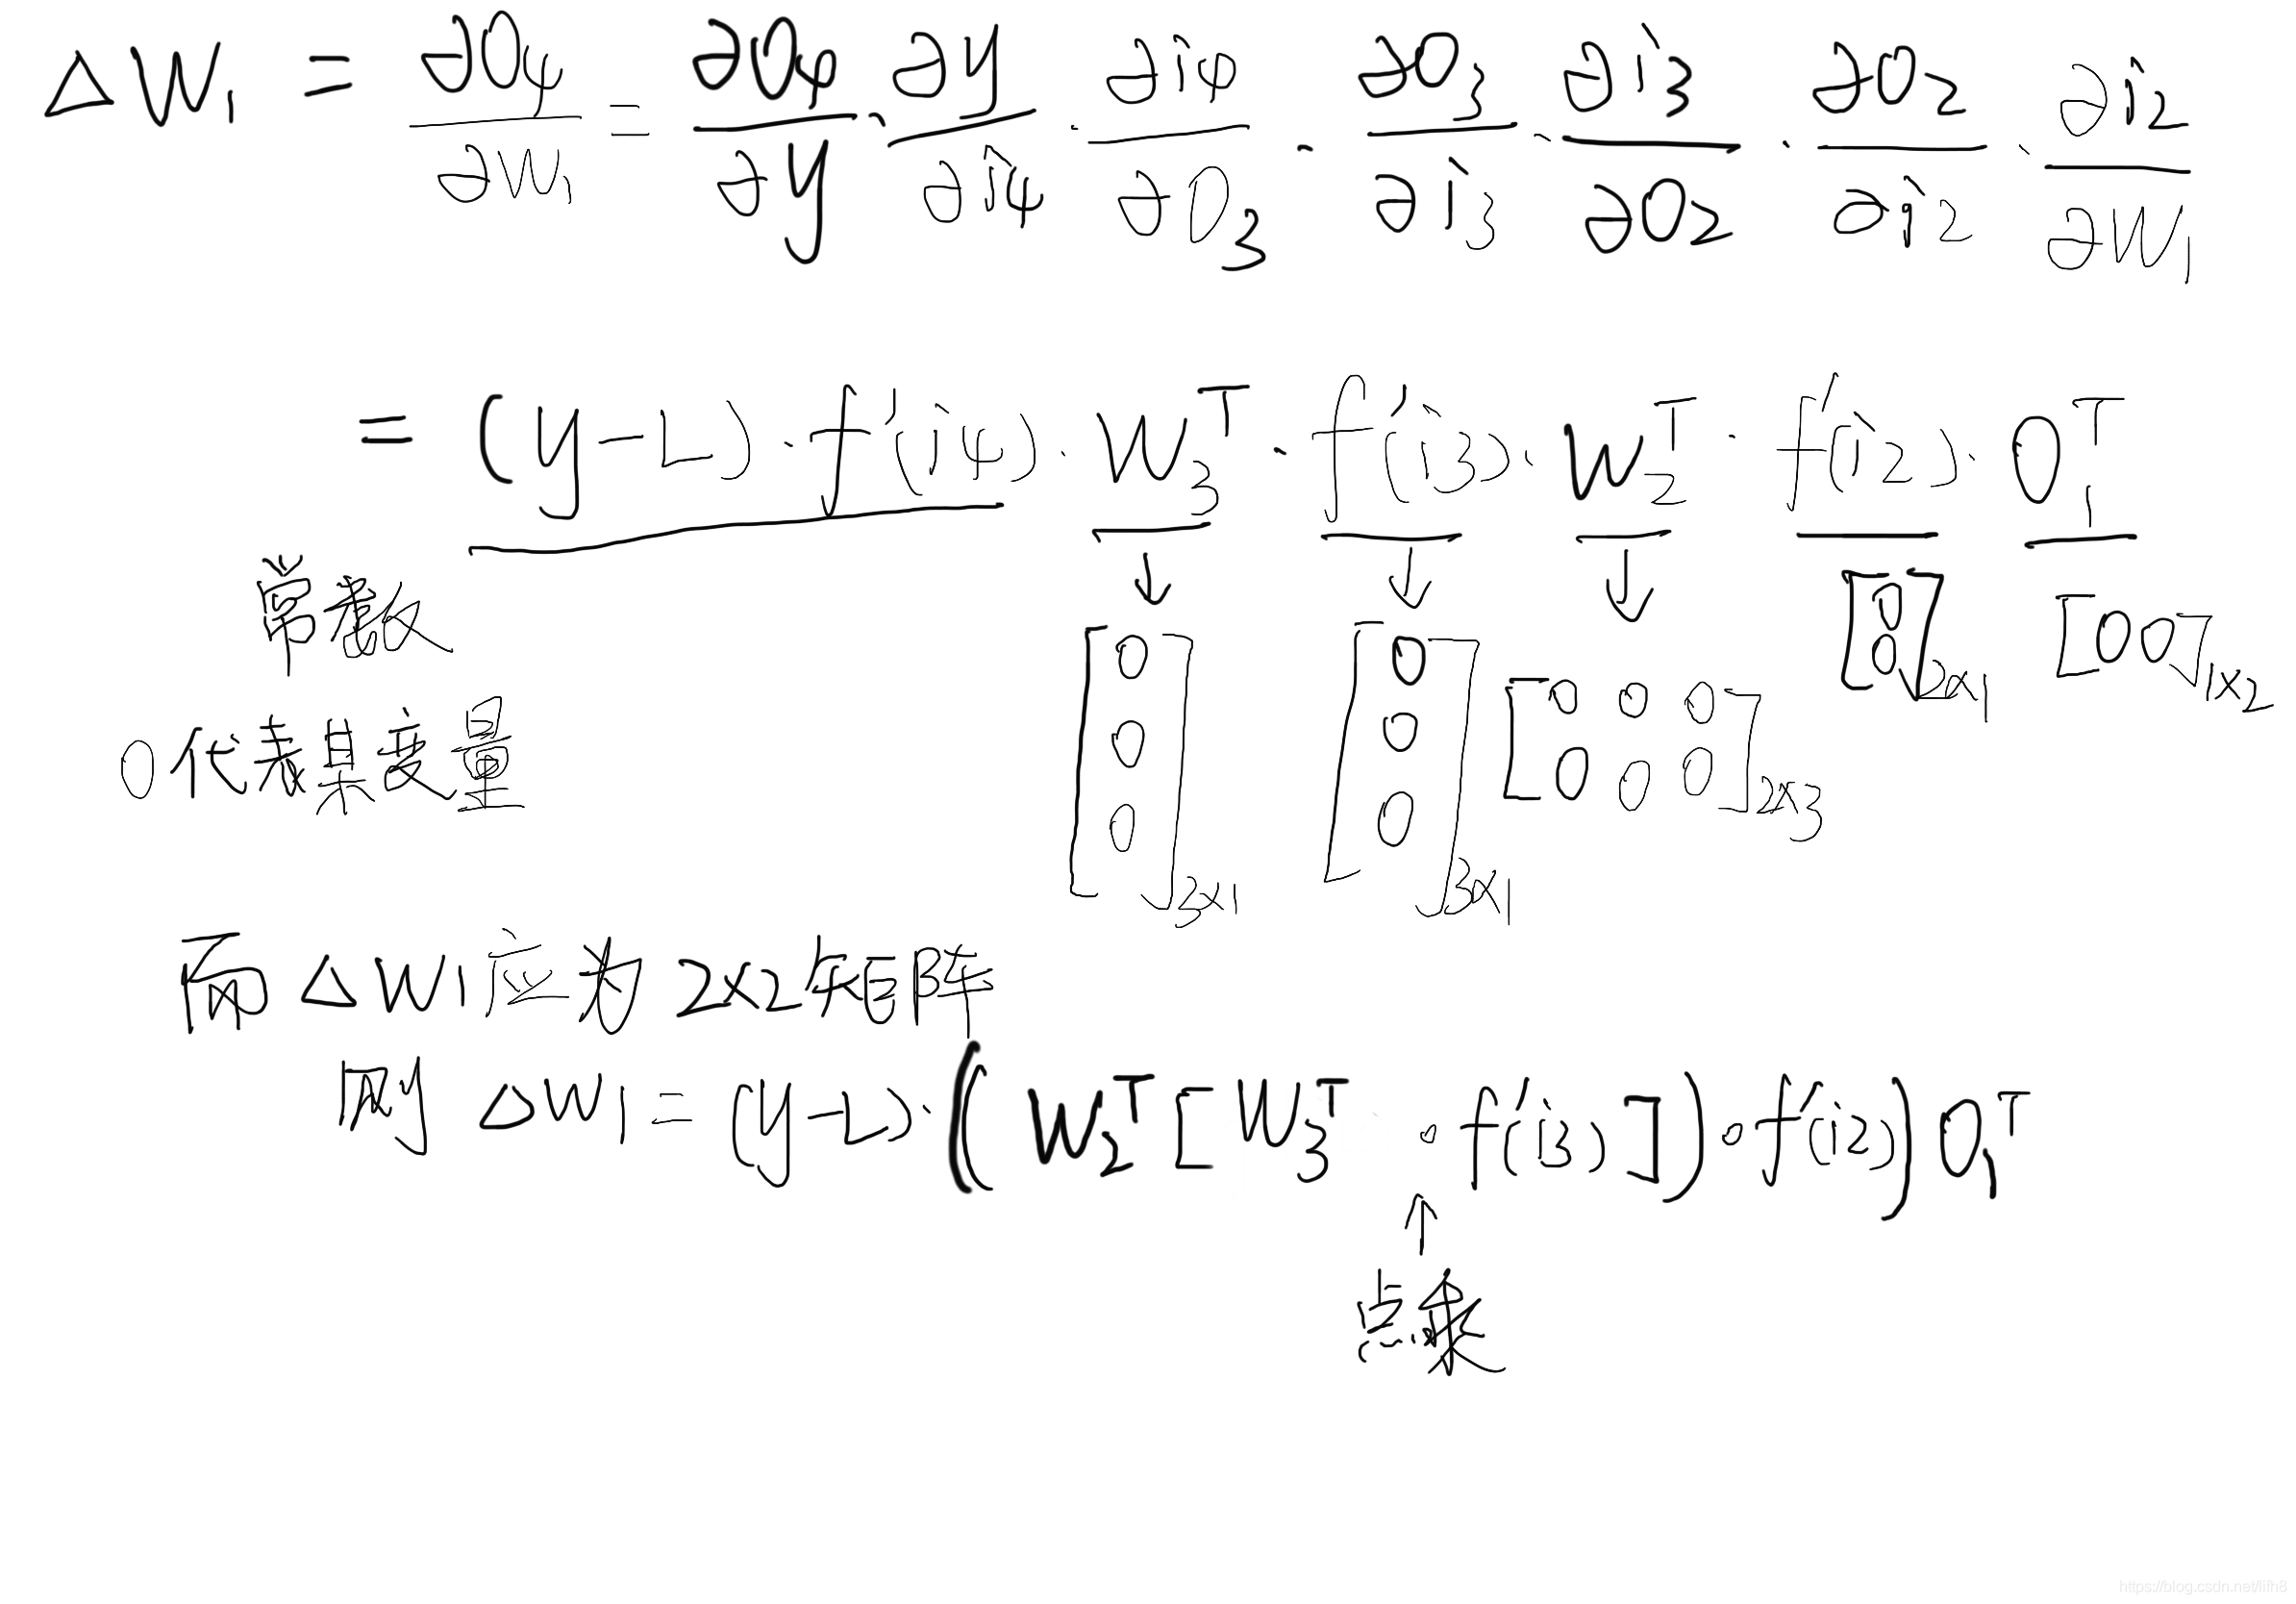 ΔW₁ = ∂O₄/∂W₁ = ∂O₄/∂y · ∂y/∂i₄ · ∂i₄/∂O₃ · ∂O₃/∂i₃ · ∂i₃/∂O₂ · ∂O₂/∂i₂ · ∂i₂/∂W₁
= (y-L) · f'(i₄) · W₃ᵀ · f'(i₃) · W₂ᵀ · f'(i₂) · O₁ᵀ
常数 ↓ ↓ ↓
[0 0 0]3×1 [0 0 0]3×1 [0 0 0 0 0 0]2×3 [0 0]2×1 [0 0]1×2
0代表某变量
而 ΔW₁应为 2×2矩阵
则 ΔW₁ = (y-L) · ((W₂ᵀ[W₃ᵀ ∘ f'(i₃)]) ∘ f'(i₂)) O₁ᵀ
↑
点乘
https://blog.csdn.net/lifh8